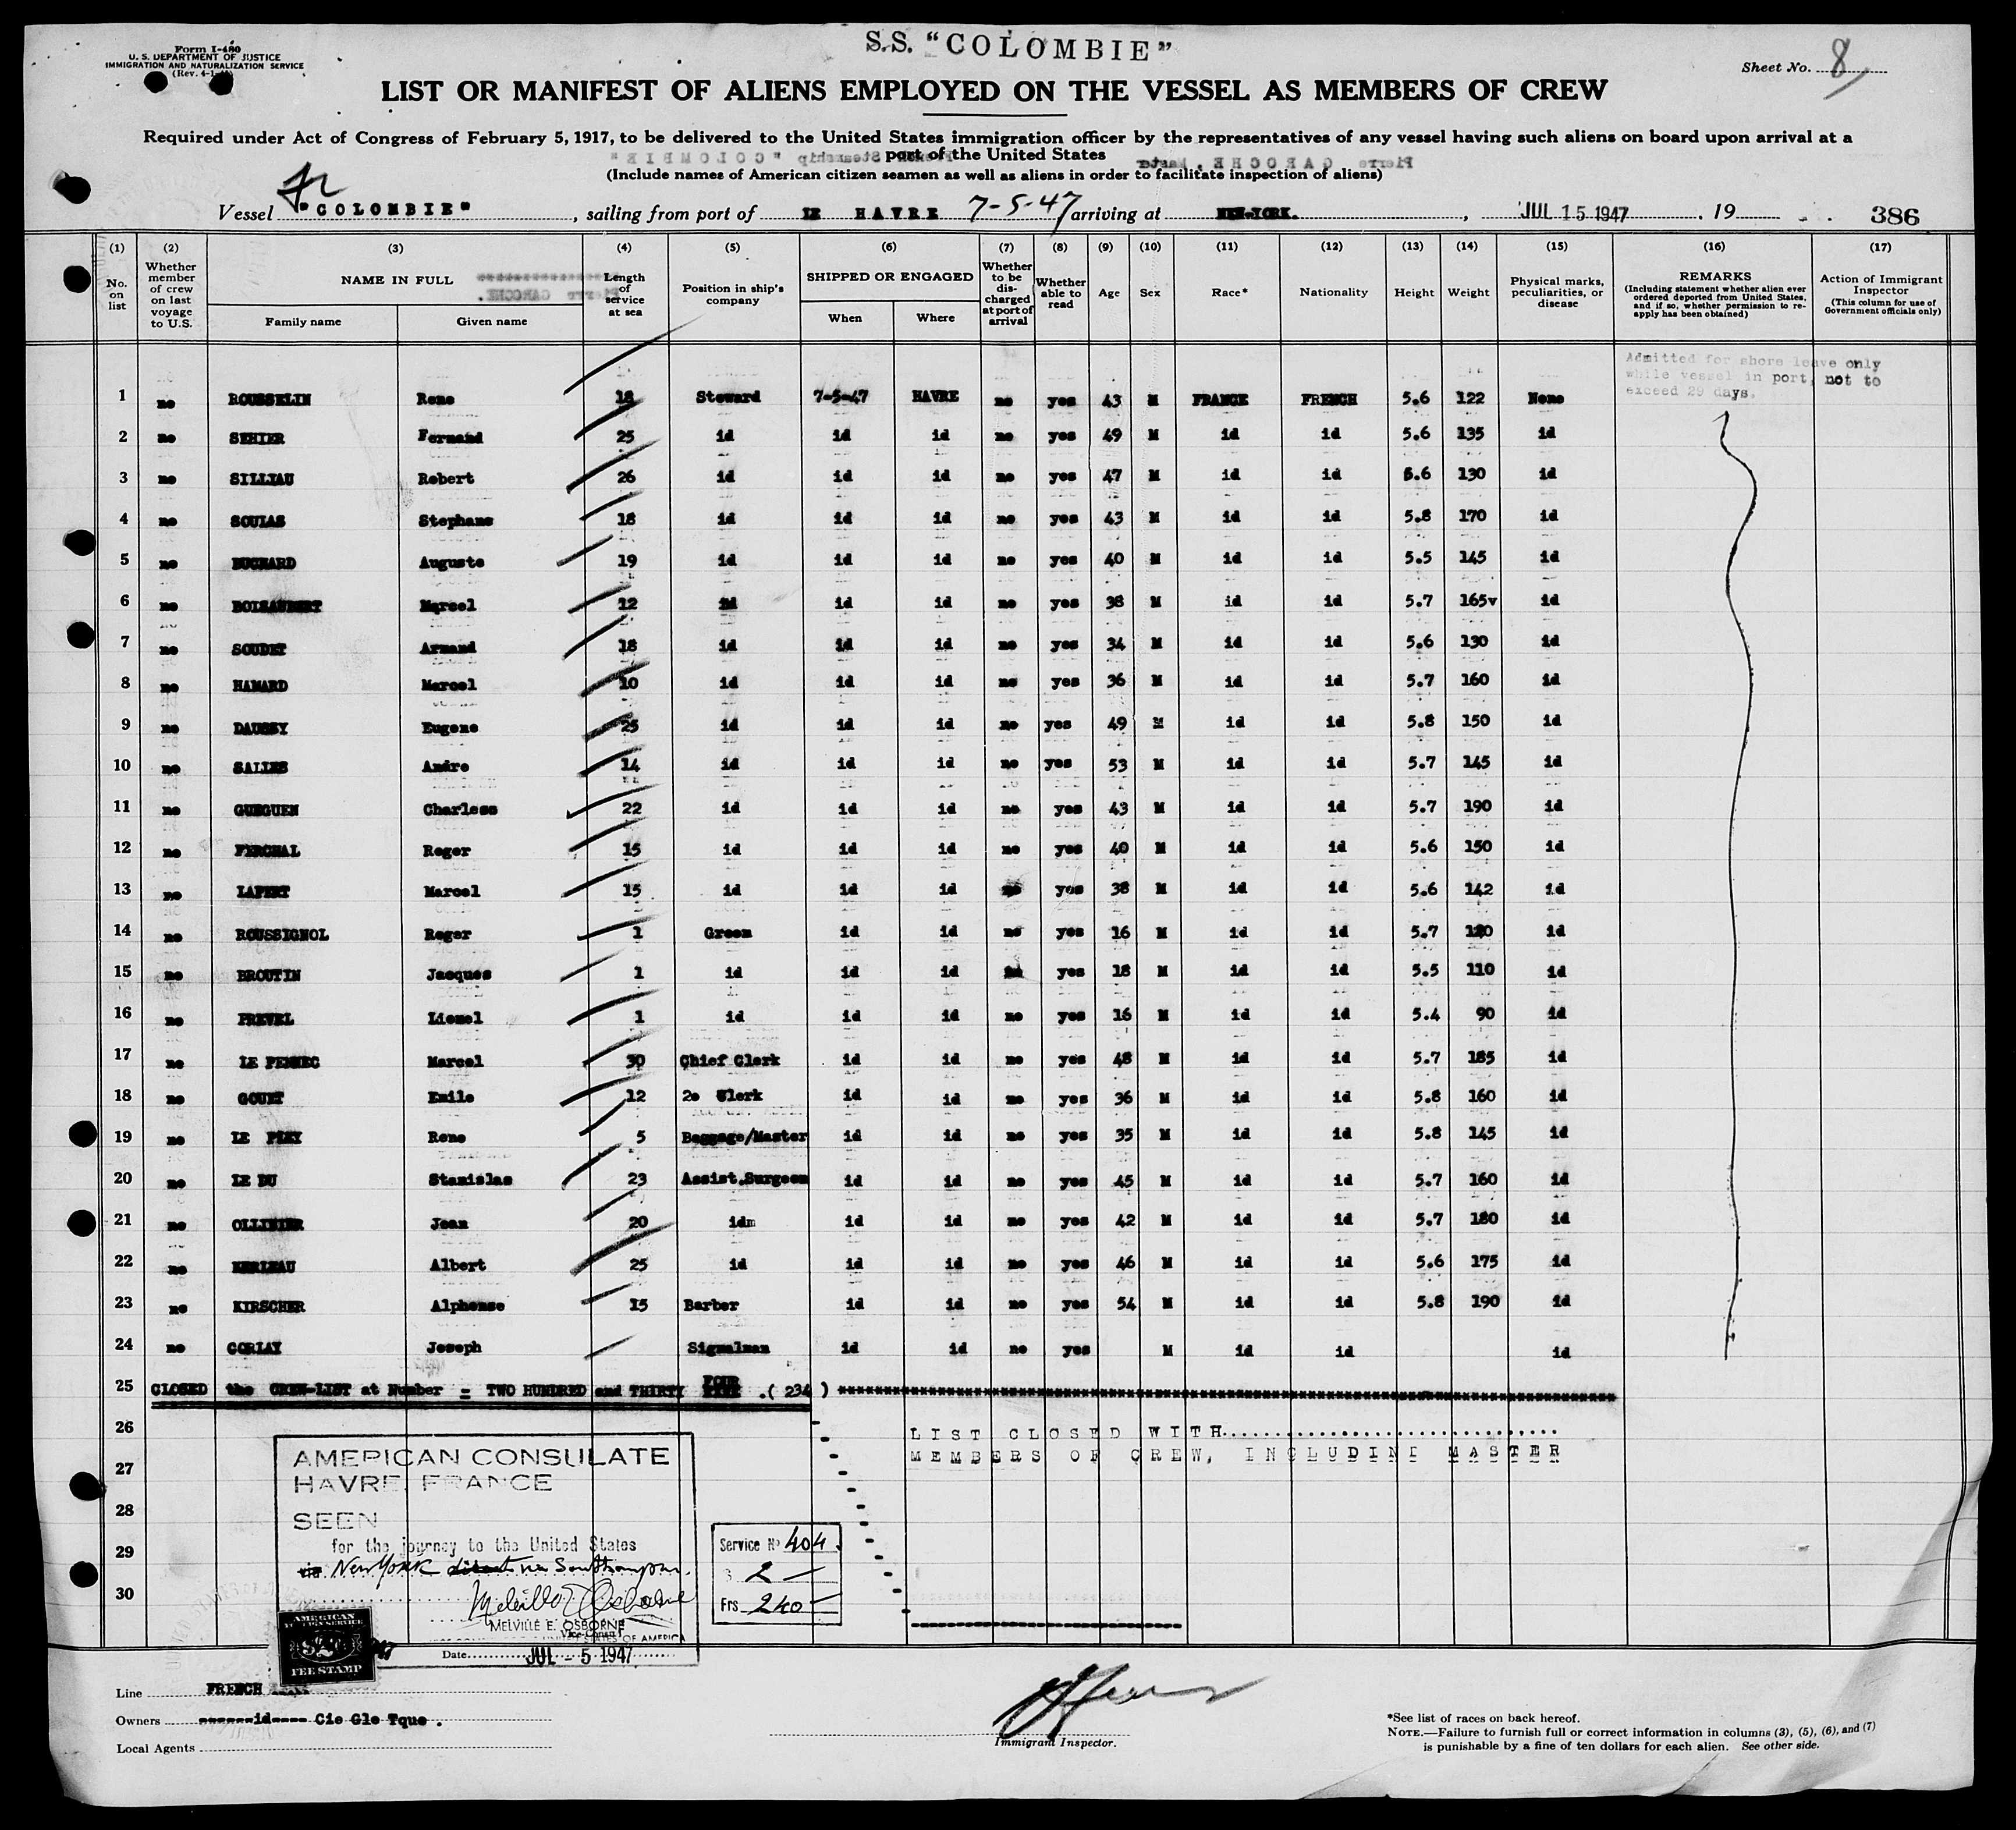 Form I-480
U. S. DEPARTMENT OF JUSTICE
IMMIGRATION AND NATURALIZATION SERVICE
S.S. "COLOMBIE"
Sheet No. 8
LIST OR MANIFEST OF ALIENS EMPLOYED ON THE VESSEL AS MEMBERS OF CREW
Required under Act of Congress of February 5, 1917, to be delivered to the United States immigration officer by the representatives of any vessel having such aliens on board upon arrival at a
port of the United States
(Include names of American citizen seamen as well as aliens in order to facilitate inspection of aliens)
Vessel "COLOMBIE", sailing from port of LE HAVRE 7-5-47 arriving at NEW-YORK. , JUL 15 1947 . 19 386
(1) (2) (3) (4) (5) (6) (7) (8) (9) (10) (11) (12) (13) (14) (15) (16) (17)
No. on list
Whether member of crew on last voyage to U.S.
NAME IN FULL
Family name Given name
Length of service at sea
Position in ship's company
SHIPPED OR ENGAGED
When Where
Whether to be discharged at port of arrival
Whether able to read
Age
Sex
Race*
Nationality
Height
Weight
Physical marks, peculiarities, or disease
REMARKS
(Including statement whether alien ever ordered deported from United States, and if so, whether permission to re-apply has been obtained)
Action of Immigrant Inspector
(This column for use of Government officials only)
Admitted for shore leave only
while vessel in port, not to
exceed 29 days.
1 no ROUSSELIN Rene 18 Steward 7-5-47 HAVRE no yes 43 M FRANCE FRENCH 5.6 122 None
2 no SEHIER Fernand 25 id id id no yes 49 M id id 5.6 135 id
3 no SILLIAU Robert 26 id id id no yes 47 M id id 5.6 130 id
4 no SOUIAS Stephane 18 id id id no yes 43 M id id 5.8 170 id
5 no Auguste 19 id id id no yes 40 M id id 5.5 145 id
6 no Marcel 12 id id id no yes 38 M id id 5.7 165v id
7 no SOUDET Armand 18 id id id no yes 34 M id id 5.6 130 id
8 no HAMARD Marcel 10 id id id no yes 36 M id id 5.7 160 id
9 no DAUSSY Eugene 25 id id id no yes 49 M id id 5.8 150 id
10 no SALLES Andre 14 id id id no yes 53 M id id 5.7 145 id
11 no GUEGUEN Charless 22 id id id no yes 43 M id id 5.7 190 id
12 no FERCHAL Roger 15 id id id no yes 40 M id id 5.6 150 id
13 no LAPERT Marcel 15 id id id no yes 38 M id id 5.6 142 id
14 no ROUSSIGNOL Roger 1 Groom id id no yes 16 M id id 5.7 120 id
15 no BROUTIN Jacques 1 id id id yes 18 M id id 5.5 110 id
16 no PREVEL Lionel 1 id id id no yes 16 M id id 5.4 90 id
17 no LE PENNEC Marcel 30 Chief Clerk id id no yes 48 M id id 5.7 185 id
18 no GOUET Emile 12 2e Clerk id id no yes 36 M id id 5.8 160 id
19 no LE PLEY Rene 5 Baggage/Master id id no yes 35 M id id 5.8 145 id
20 no LE DU Stanislas 23 Assist.Surgeon id id no yes 45 M id id 5.7 160 id
21 no OLLIVIER Jean 20 idm id id no yes 42 M id id 5.7 180 id
22 no Albert 25 id id id no yes 46 M id id 5.6 175 id
23 no KIRSCHER Alphonse 15 Barber id id no yes 54 M id id 5.8 190 id
24 no CORLAY Joseph Signalman id id no yes M id id id
25 CLOSED the CREW-LIST at Number = TWO HUNDRED and THIRTY FOUR .( 234 )
26
27
28
29
30
LIST CLOSED WITH..............................
MEMBERS OF CREW, INCLUDINI MASTER
AMERICAN CONSULATE
HAVRE, FRANCE
SEEN
for the journey to the United States
via New York direct via Southampton.
MELVILLE E. OSBORNE
Vice-Consul
UNITED STATES OF AMERICA
Date JUL - 5 1947
Service No 404
$ 2 —
Frs 240 —
AMERICAN
FEE STAMP
Line FRENCH
Owners ------id---- Cie Gle Tque .
Local Agents
Immigrant Inspector.
*See list of races on back hereof.
NOTE.—Failure to furnish full or correct information in columns (3), (5), (6), and (7)
is punishable by a fine of ten dollars for each alien. See other side.